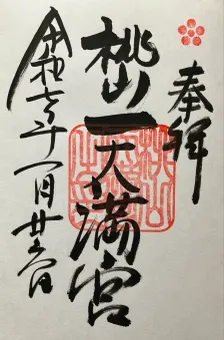 奉拝
桃山天満宮
令和六年一月廿六日